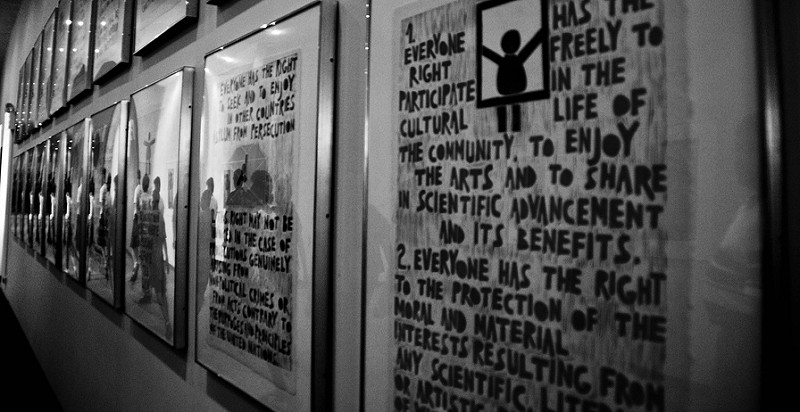 EVERYONE HAS THE RIGHT
TO SEEK AND TO ENJOY
IN OTHER COUNTRIES
ASYLUM FROM PERSECUTION
2. RIGHT MAY NOT BE
IN THE CASE OF
GENUINELY
ARISING FROM
POLITICAL CRIMES OR
FROM ACTS CONTRARY TO
THE PURPOSES AND PRINCIPLES
OF THE UNITED NATIONS.
1. HAS THE
EVERYONE FREELY TO
RIGHT IN THE
PARTICIPATE LIFE OF
CULTURAL
THE COMMUNITY, TO ENJOY
THE ARTS AND TO SHARE
IN SCIENTIFIC ADVANCEMENT
AND ITS BENEFITS.
2. EVERYONE HAS THE RIGHT
TO THE PROTECTION OF THE
MORAL AND MATERIAL
INTERESTS RESULTING FROM
ANY SCIENTIFIC,
OR ARTISTIC